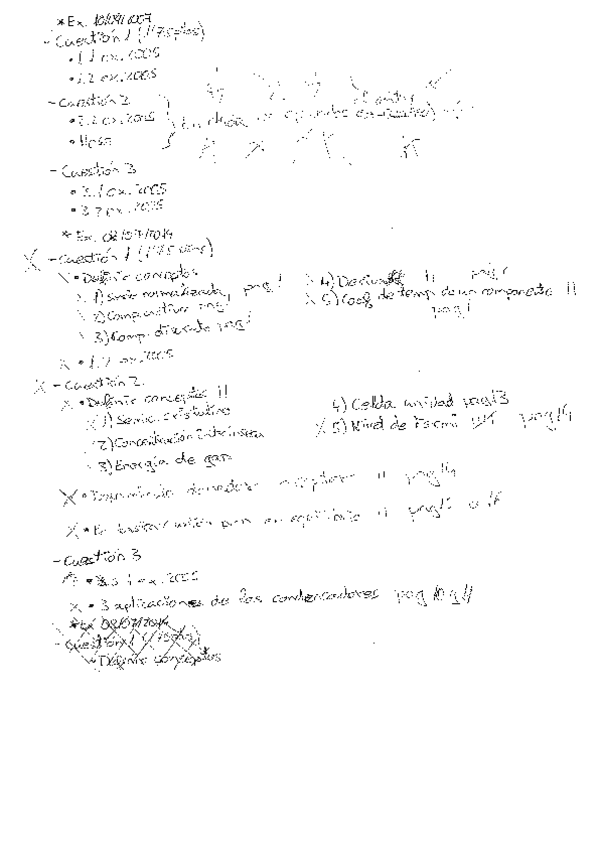 * Ex. 10/09/2007
- Cuestión 1 (1'75 ptos)
• 1.1 ex. 2005
• 1.2 ex. 2005
- Cuestión 2
• 2.2 ex. 2005
• Hoja
- Cuestión 3
• 3.1 ex. 2005
• 3.2 ex. 2005
* Ex. 08/07/2014
X - Cuestión 1 (1'75 ptos)
• Definir conceptos
1) Serie normalizada, pag 1
2) Comp. activo pag 1
3) Comp. discreto pag 1
4) Derivada !!
5) Coef de temp. de un componente !! pag 1
X • 1.2 ex. 2005
X - Cuestión 2
X • Definir conceptos !!
X 1) Semic. extrínseco
2) Concentración intrínseca
3) Energía de gap
4) Celda unidad pag 13
X 5) Nivel de Fermi pag 14
X • !! pag 14
X • equilibrio !! pag 15 o 16
- Cuestión 3
• 3.1 ex. 2005
X • 3 aplicaciones de los condensadores pag 10 y 11
* Ex 08/07/2014
- Cuestión 1
Definir conceptos